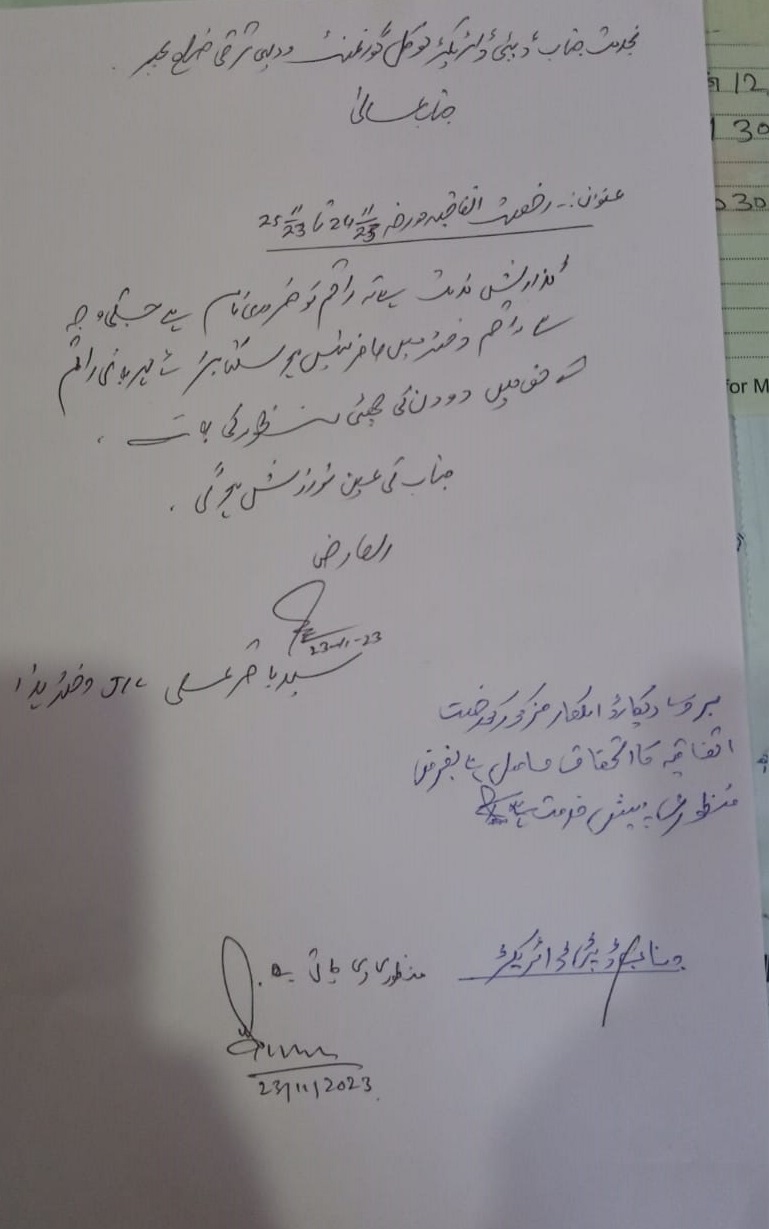 بخدمت جناب ڈپٹی ڈائریکٹر لوکل گورنمنٹ و دیہی ترقی ضلع بھمبر
جناب عالی
عنوان:- رخصت اتفاقیہ مورخہ 24/11/23 تا 25/11/23
گذارش خدمت ہے کہ راقم کو ضروری کام ہے جسکی وجہ
سے راقم دفتر میں حاضر نہیں ہو سکتا براۓ مہربانی راقم
کے حق میں دو دن کی چھٹی منظور کی جاۓ
جناب کی عین نوازش ہو گی ۔
العارض
23-11-23
سید باقر علی J/C دفتر ہذا
بروۓ ریکارڈ اہلکار مذکور کو رخصت
اتفاقیہ کا استحقاق حاصل ہے بغرض
منظوری پیش خدمت ہے
جناب ڈپٹی ڈائریکٹر
منظوری دی جاتی ہے ۔
23/11/2023
12
30
030
for M